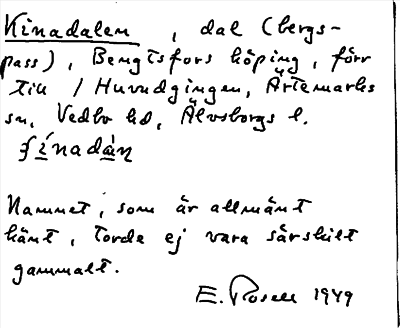 Kinadalen, dal (bergs-
pass), Bengtsfors köping, förr
till 1 Huvudgingen, Ärtemarks
sn, Vedbo hd, Älvsborgs l.
ʃinadàn
Namnet, som är allmänt
känt, torde ej vara särskilt
gammalt.
E. Rosell 1949